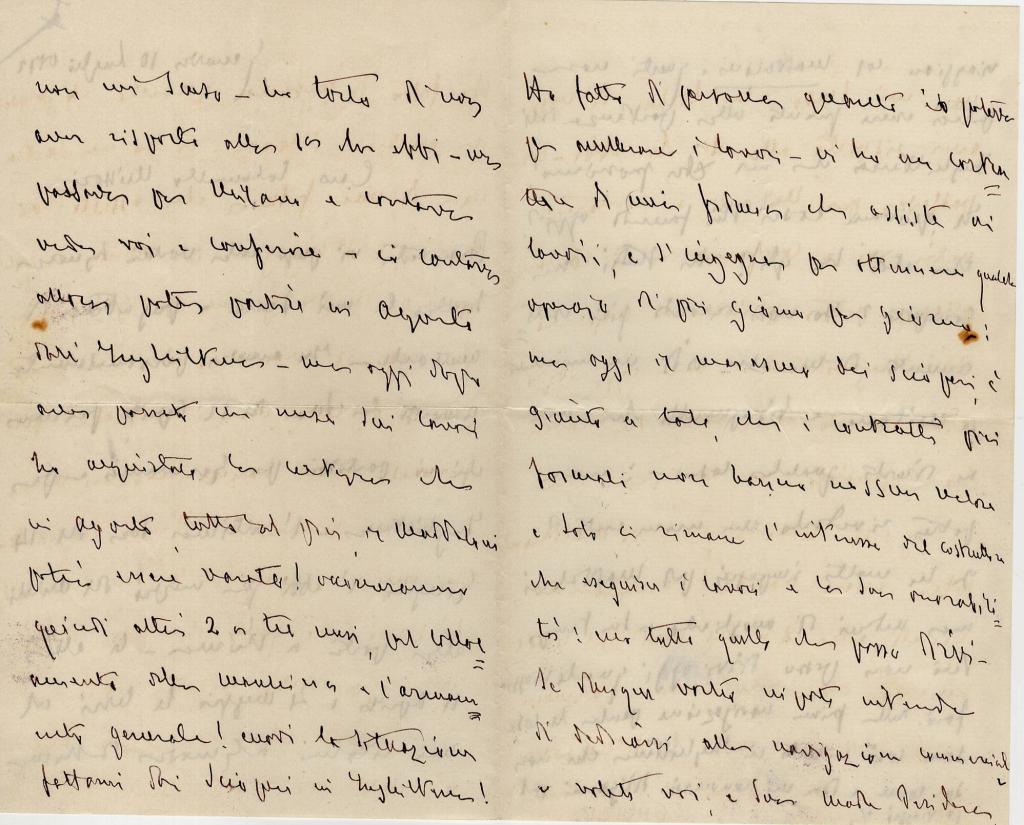 non mi scuso – ho torto di non
aver risposto alla sua che ebbi – ma
passando per Milano e contava
veder voi e conferire – io contava
allora poter partire in Agosto
dall' Inghilterra – ma oggi dopo
aver passato un mese sui lavori
ho acquistata la certezza che
in agosto, tutto al più, il Maddaloni
potrà essere varata! occorreranno
quindi altri 2 o tre mesi, pel colloc=
amento della macchina e l'armam=
ento generale! ecco la situazione
fattami dai scioperi in Inghilterra!
Ho fatto di persona quanto io poteva
per accellerare i lavori – vi ho un costrut=
tore di mia fiducia che assiste ai
lavori, e s'ingegna per ottennere qualche
operajo di più giorno per giorno;
ma oggi il marasma dei scioperi, è
giunto a tale, che i contratti più
formali non hanno nessun valore
e solo ci rimane l'interesse del costruttore
che eseguisce i lavori e la sua onorabili=
tà! ma tutto quello che posso dirvi –
Se dunque vostro nipote intende
di dedicarsi alla navigazione commerciale
e volete voi, e sua madre desidera